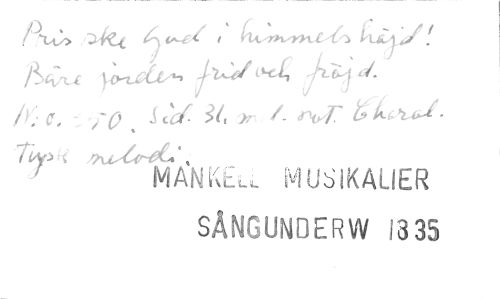 Pris ske Gud i himmelshöjd!
Bäre jorden frid och fröjd.
N:o. 350. Sid. 31, mel. not. Choral.
Tysk melodi.
MANKELL MUSIKALIER
SÅNGUNDERW 1835